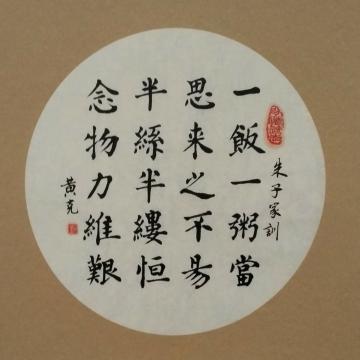 朱子家訓
一飯一粥當
思来之不易
半絲半縷恒
念物力維艱
黄克